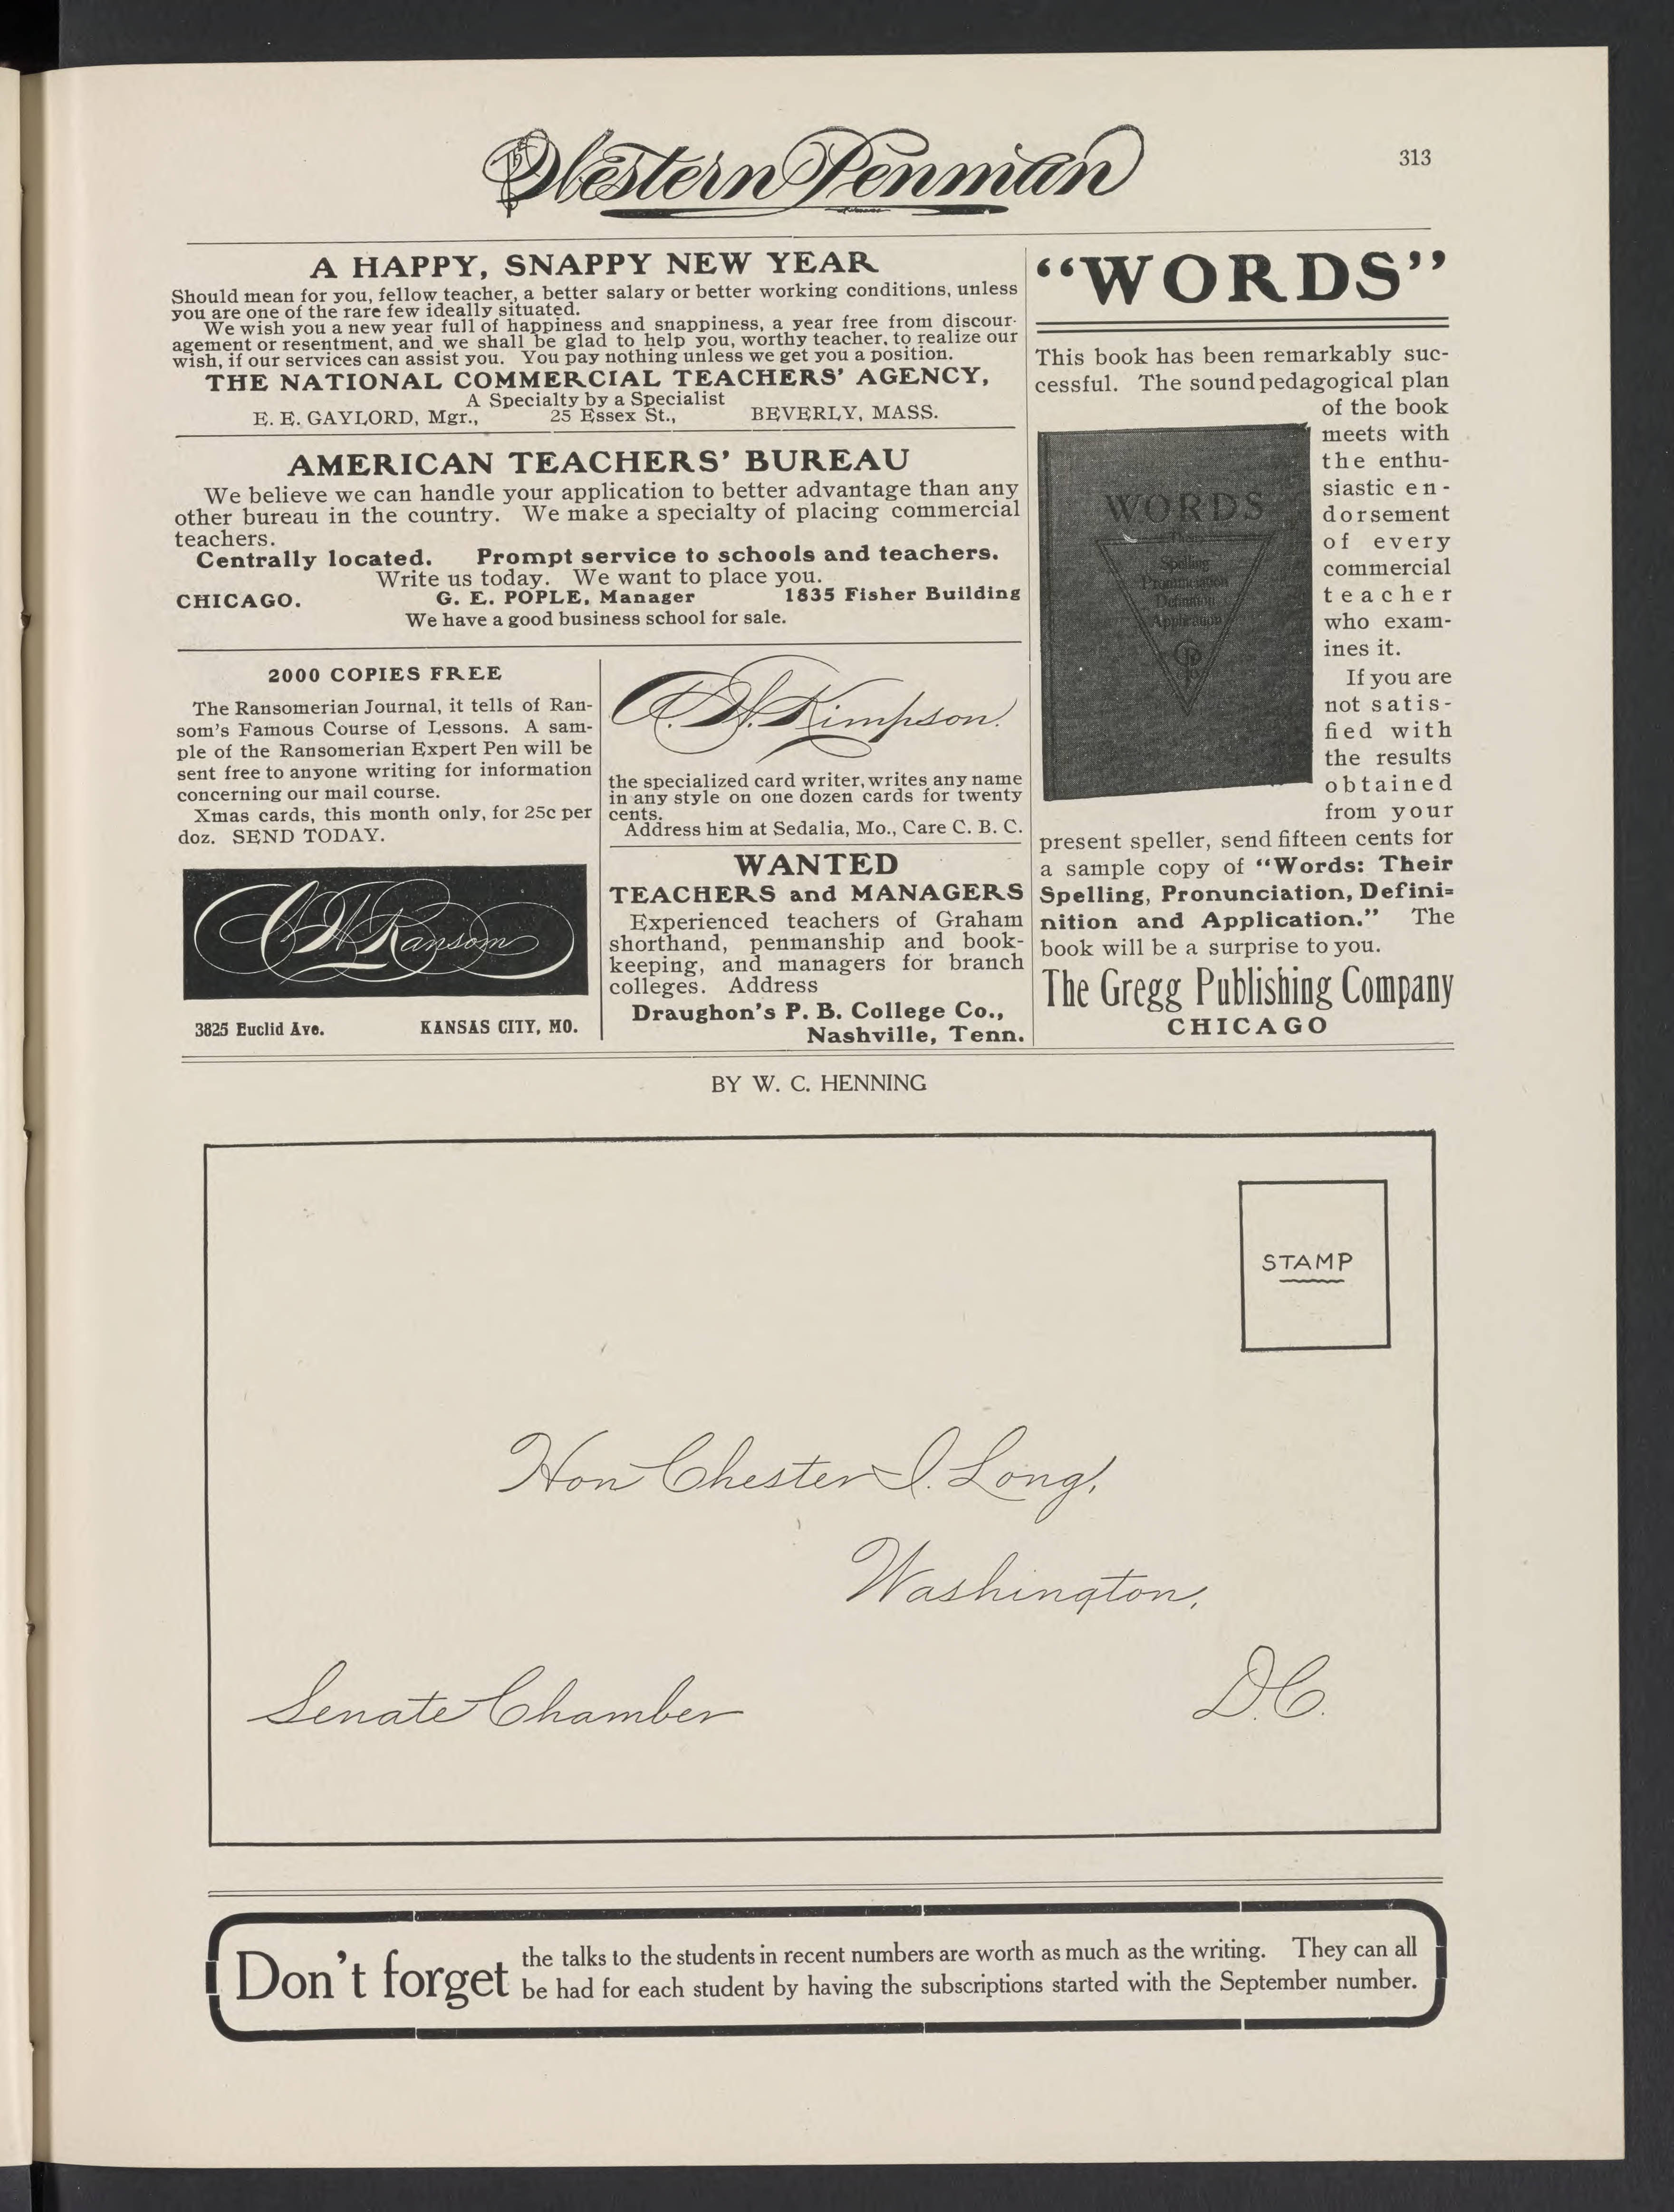 The Western Penman
313
A HAPPY, SNAPPY NEW YEAR
Should mean for you, fellow teacher, a better salary or better working conditions, unless
you are one of the rare few ideally situated.
We wish you a new year full of happiness and snappiness, a year free from discour-
agement or resentment, and we shall be glad to help you, worthy teacher, to realize our
wish, if our services can assist you. You pay nothing unless we get you a position.
THE NATIONAL COMMERCIAL TEACHERS' AGENCY,
A Specialty by a Specialist
E. E. GAYLORD, Mgr., 25 Essex St., BEVERLY, MASS.
AMERICAN TEACHERS' BUREAU
We believe we can handle your application to better advantage than any
other bureau in the country. We make a specialty of placing commercial
teachers.
Centrally located. Prompt service to schools and teachers.
Write us today. We want to place you.
CHICAGO. G. E. POPLE, Manager 1835 Fisher Building
We have a good business school for sale.
2000 COPIES FREE
The Ransomerian Journal, it tells of Ran-
som's Famous Course of Lessons. A sam-
ple of the Ransomerian Expert Pen will be
sent free to anyone writing for information
concerning our mail course.
Xmas cards, this month only, for 25c per
doz. SEND TODAY.
C W Ransom
3825 Euclid Ave. KANSAS CITY, MO.
Kimpson.
the specialized card writer, writes any name
in any style on one dozen cards for twenty
cents.
Address him at Sedalia, Mo., Care C. B. C.
WANTED
TEACHERS and MANAGERS
Experienced teachers of Graham
shorthand, penmanship and book-
keeping, and managers for branch
colleges. Address
Draughon's P. B. College Co.,
Nashville, Tenn.
"WORDS"
This book has been remarkably suc-
cessful. The sound pedagogical plan
of the book
meets with
the enthu-
siastic en-
dorsement
of every
commercial
teacher
who exam-
ines it.
If you are
not satis-
fied with
the results
obtained
from your
present speller, send fifteen cents for
a sample copy of "Words: Their
Spelling, Pronunciation, Defini=
nition and Application." The
book will be a surprise to you.
The Gregg Publishing Company
CHICAGO
WORDS
Their
Spelling
Pronunciation
Definition
Application
BY W. C. HENNING
STAMP
Hon Chester I. Long,
Washington,
Senate Chamber D.C.
Don't forget the talks to the students in recent numbers are worth as much as the writing. They can all
be had for each student by having the subscriptions started with the September number.